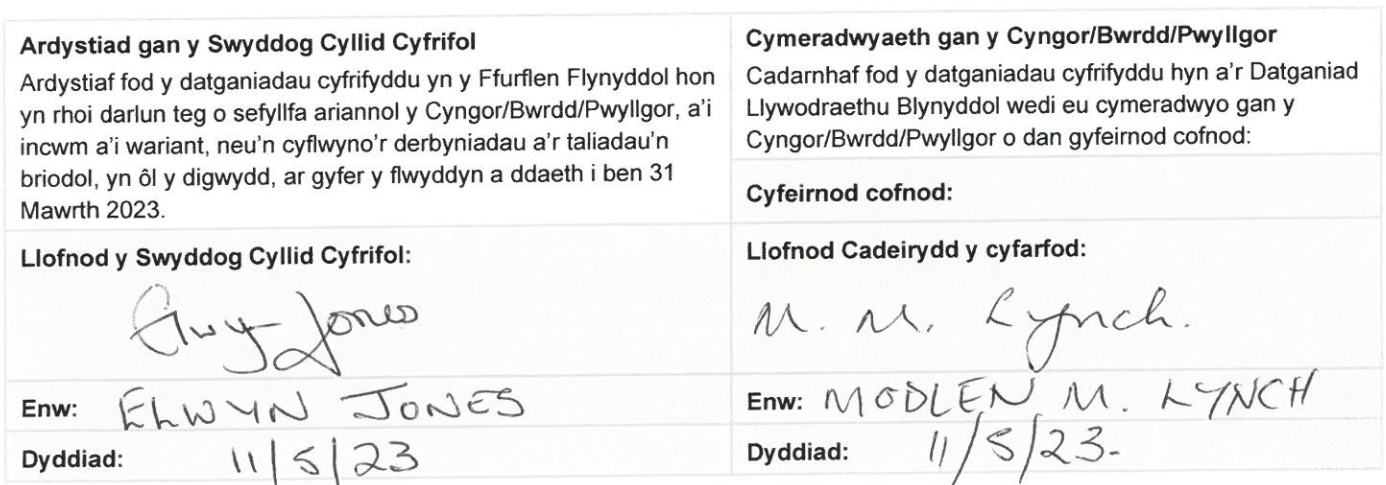 Ardystiad gan y Swyddog Cyllid Cyfrifol
Ardystiaf fod y datganiadau cyfrifyddu yn y Ffurflen Flynyddol hon
yn rhoi darlun teg o sefyllfa ariannol y Cyngor/Bwrdd/Pwyllgor, a'i
incwm a'i wariant, neu'n cyflwyno'r derbyniadau a'r taliadau'n
briodol, yn ôl y digwydd, ar gyfer y flwyddyn a ddaeth i ben 31
Mawrth 2023.
Llofnod y Swyddog Cyllid Cyfrifol:
Elwyn Jones
Enw: ELWYN JONES
Dyddiad: 11/5/23
Cymeradwyaeth gan y Cyngor/Bwrdd/Pwyllgor
Cadarnhaf fod y datganiadau cyfrifyddu hyn a'r Datganiad
Llywodraethu Blynyddol wedi eu cymeradwyo gan y
Cyngor/Bwrdd/Pwyllgor o dan gyfeirnod cofnod:
Cyfeirnod cofnod:
Llofnod Cadeirydd y cyfarfod:
M. M. Lynch.
Enw: MODLEN M. LYNCH
Dyddiad: 11/5/23-